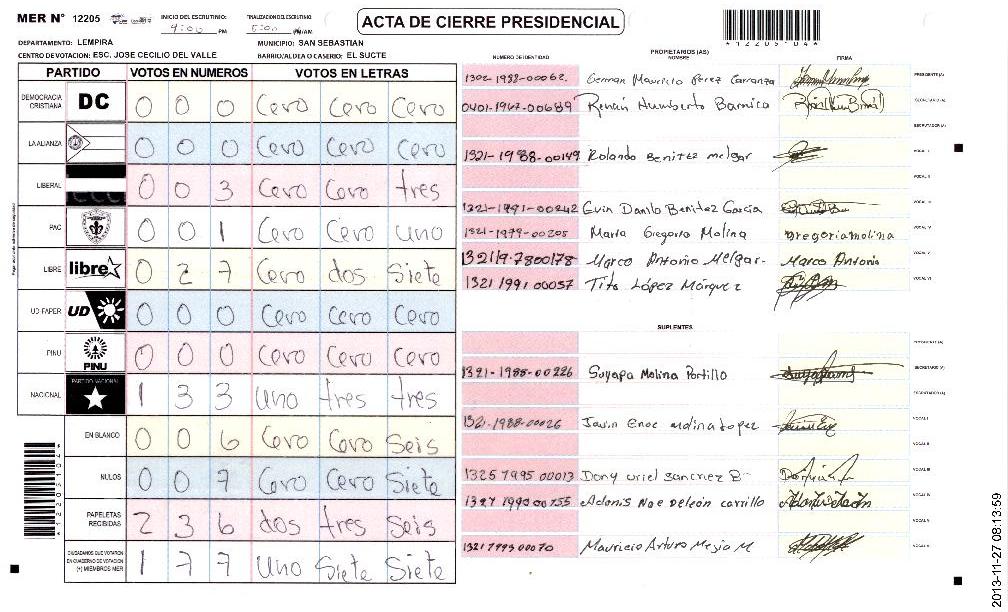 MER N° 12205
INICIO DEL ESCRUTINIO: 4:00 PM
FINALIZACION DEL ESCRUTINIO 5:00 PM/AM
ACTA DE CIERRE PRESIDENCIAL
*12205104*
DEPARTAMENTO: LEMPIRA
MUNICIPIO: SAN SEBASTIAN
CENTRO DE VOTACION: ESC. JOSE CECILIO DEL VALLE
BARRIO/ALDEA O CASERIO: EL SUCTE
PARTIDO VOTOS EN NUMEROS VOTOS EN LETRAS
DEMOCRACIA CRISTIANA DC 0 0 0 Cero Cero Cero
LA ALIANZA 0 0 0 Cero Cero Cero
LIBERAL 0 0 3 Cero Cero tres
PAC 0 0 1 Cero Cero uno
LIBRE libre 0 2 7 Cero dos Siete
UD FAPER UD 0 0 0 Cero Cero Cero
PINU PINU 0 0 0 Cero Cero Cero
NACIONAL PARTIDO NACIONAL 1 3 3 Uno tres tres
EN BLANCO 0 0 6 Cero Cero Seis
NULOS 0 0 7 Cero Cero Siete
PAPELETAS RECIBIDAS 2 3 6 dos tres Seis
CIUDADANOS QUE VOTARON EN CUADERNO DE VOTACION (+) MIEMBROS MER 1 7 7 Uno Siete Siete
PROPIETARIOS (AS)
NUMERO DE IDENTIDAD NOMBRE FIRMA
1302-1988-00062 German Mauricio Perez Carranza PRESIDENTE (A)
0401-1967-00689 Renán Humberto Barnica SECRETARIO (A)
ESCRUTADOR (A)
1321-1988-00149 Rolando Benitez melgar VOCAL I
VOCAL II
1321-1991-00242 Evin Danilo Benitez Garcia VOCAL III
1321-1979-00205 Maria Gregoria Molina gregoria molina VOCAL IV
1321/9-7800178 Marco Antonio Melgar- Marco Antonio VOCAL V
1321 1991 00057 Tito López Márquez VOCAL VI
SUPLENTES
PRESIDENTE (A)
1321-1988-00226 Suyapa Molina Portillo SECRETARIO (A)
ESCRUTADOR (A)
1321-1988-00026 Javin Enoc molina Lopez VOCAL I
VOCAL II
1325 7995 00013 Dony uriel sanchez B VOCAL III
1327 1990 00755 Adonis Noe Deleón carrillo VOCAL IV
VOCAL V
1321 7995 00070 Mauricio Arturo Mejia M VOCAL VI
2013-11-27 08:13:59